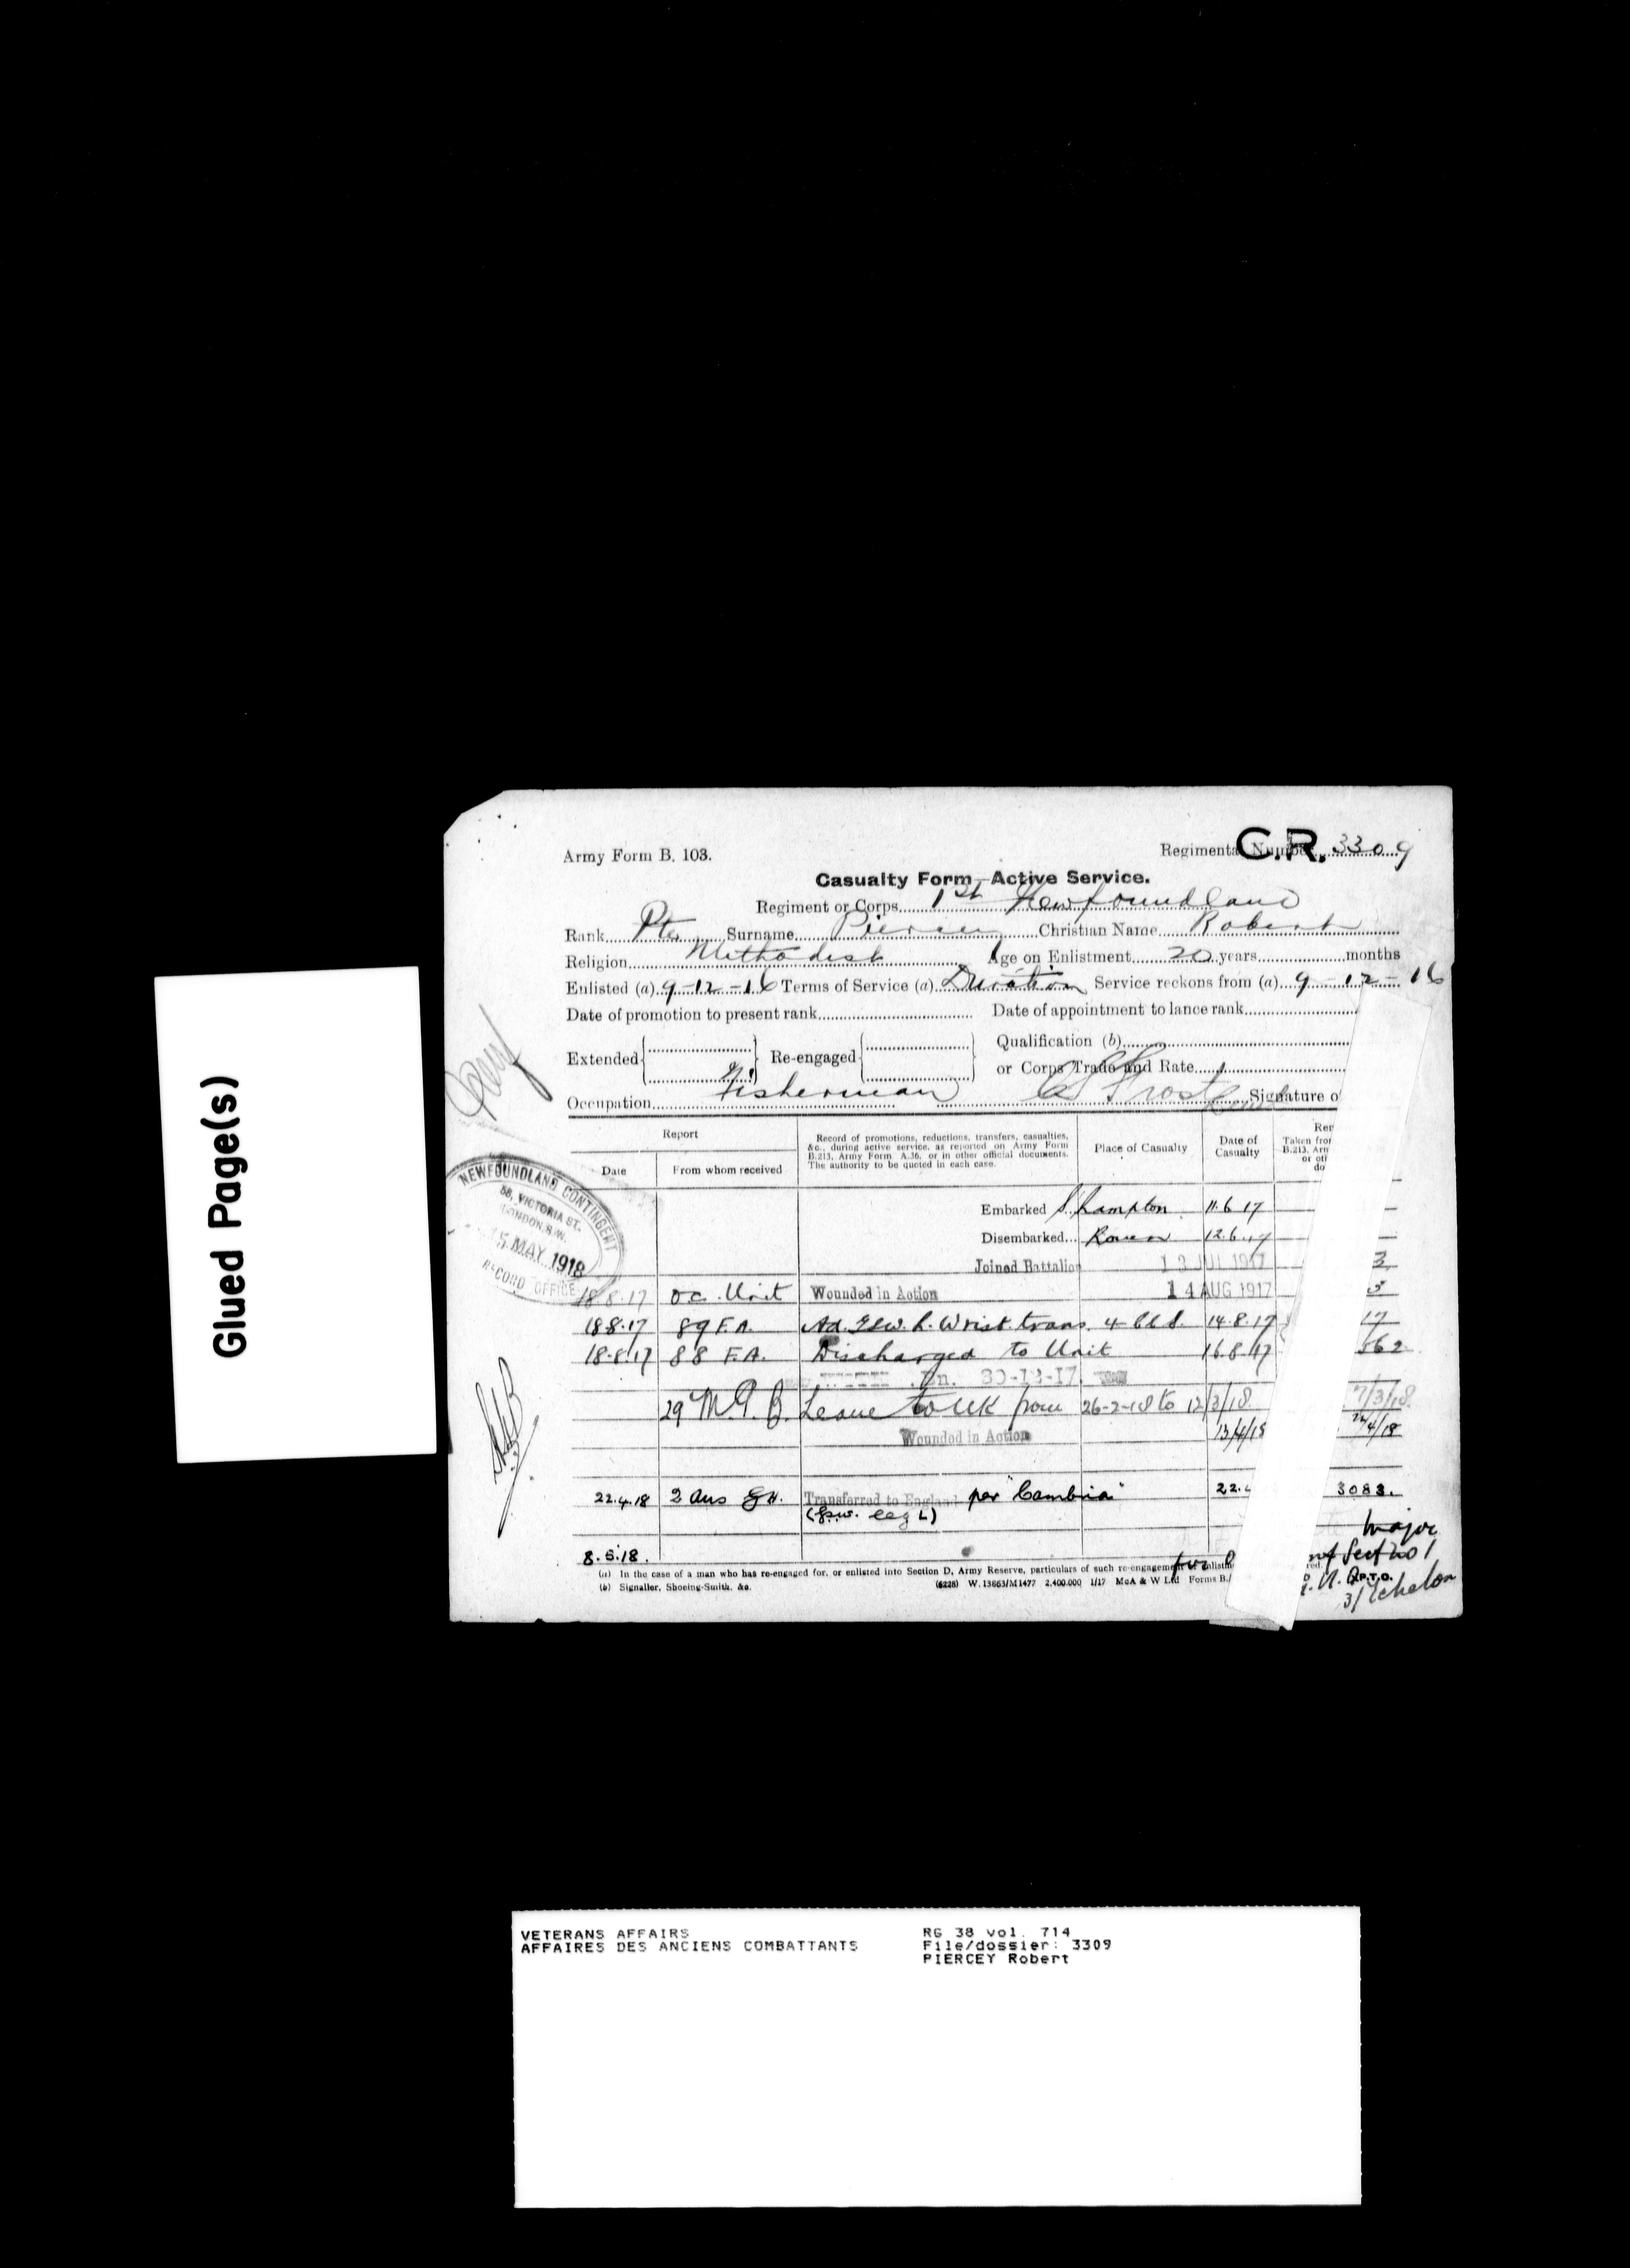 Glued Page(s)
Army Form B. 103.
Regimental Number 3309
C.R.
Casualty Form—Active Service.
Regiment or Corps 1st Newfoundland
Rank Pte Surname Piercey Christian Name Robert
Religion Methodist Age on Enlistment 20 years months
Enlisted (a) 9-12-16 Terms of Service (a) Duration Service reckons from (a) 9-12-16
Date of promotion to present rank Date of appointment to lance rank
Extended Re-engaged Qualification (b)
or Corps Trade and Rate
Occupation Fisherman Signature o
Report
Date From whom received
Record of promotions, reductions, transfers, casualties, &c., during active service, as reported on Army Form B.213, Army Form A.36, or in other official documents. The authority to be quoted in each case.
Place of Casualty
Date of Casualty
Taken from
B.213, Arm
or oth
do
NEWFOUNDLAND CONTINGENT
58, VICTORIA ST.
LONDON S.W.
MAY 1918
RECORD OFFICE
Embarked S.hampton 11.6.17
Disembarked Rouen 12.6.17
Joined Battalion JUL 1917 3
18.8.17 O.C. Unit Wounded in Action 14 AUG 1917
18.8.17 89 F.A. Ad. GSW. L. Wrist trans. 4 CCS. 14.8.17 17
18.8.17 88 F.A. Discharged to Unit 16.8.17 562
Leave to UK from 26-2-18 to 12/3/18 7/3/18
Wounded in Action 13/4/18 /4/18
22.4.18 2 Aus G.H. Transferred to England per "Cambria" 22. 3083.
(gsw. leg L)
Major
8.5.18. for Sect no 1
(a) In the case of a man who has re-engaged for, or enlisted into Section D, Army Reserve, particulars of such re-engagement or enlistm
(b) Signaller, Shoeing-Smith, &c. (6228) W.13663/M1477 2,400,000 1/17 McA & W Ltd Forms B./ P.T.O.
3/Echelon
VETERANS AFFAIRS RG 38 vol. 714
AFFAIRES DES ANCIENS COMBATTANTS File/dossier: 3309
PIERCEY Robert